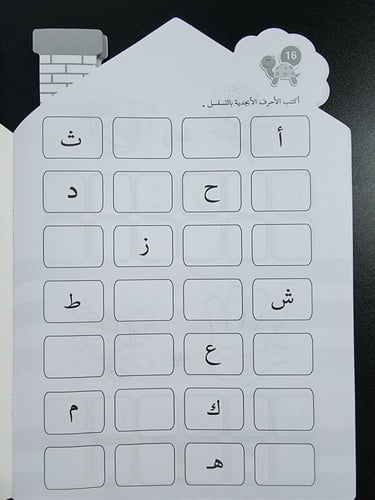 16
أكتب الأحرف الأبجدية بالتسلسل .
أ ث
ح د
ز
ش ط
ع
ك م
هـ